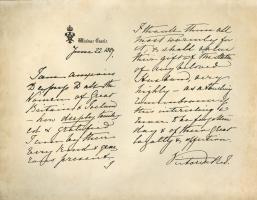 Windsor Castle
June 22. 1887.
I am anxious
to express to all the
Women of Great
Britain & Ireland
how deeply touch-
ed & gratified
I am by their
very kind & gene-
rous present,
I thank them all
most warmly for
it, & shall value
their gift of the Statue
of my beloved
Husband, very
highly – as a touching
this
never to be forgotten
day & of their great
loyalty & affection.
Victoria R.I.